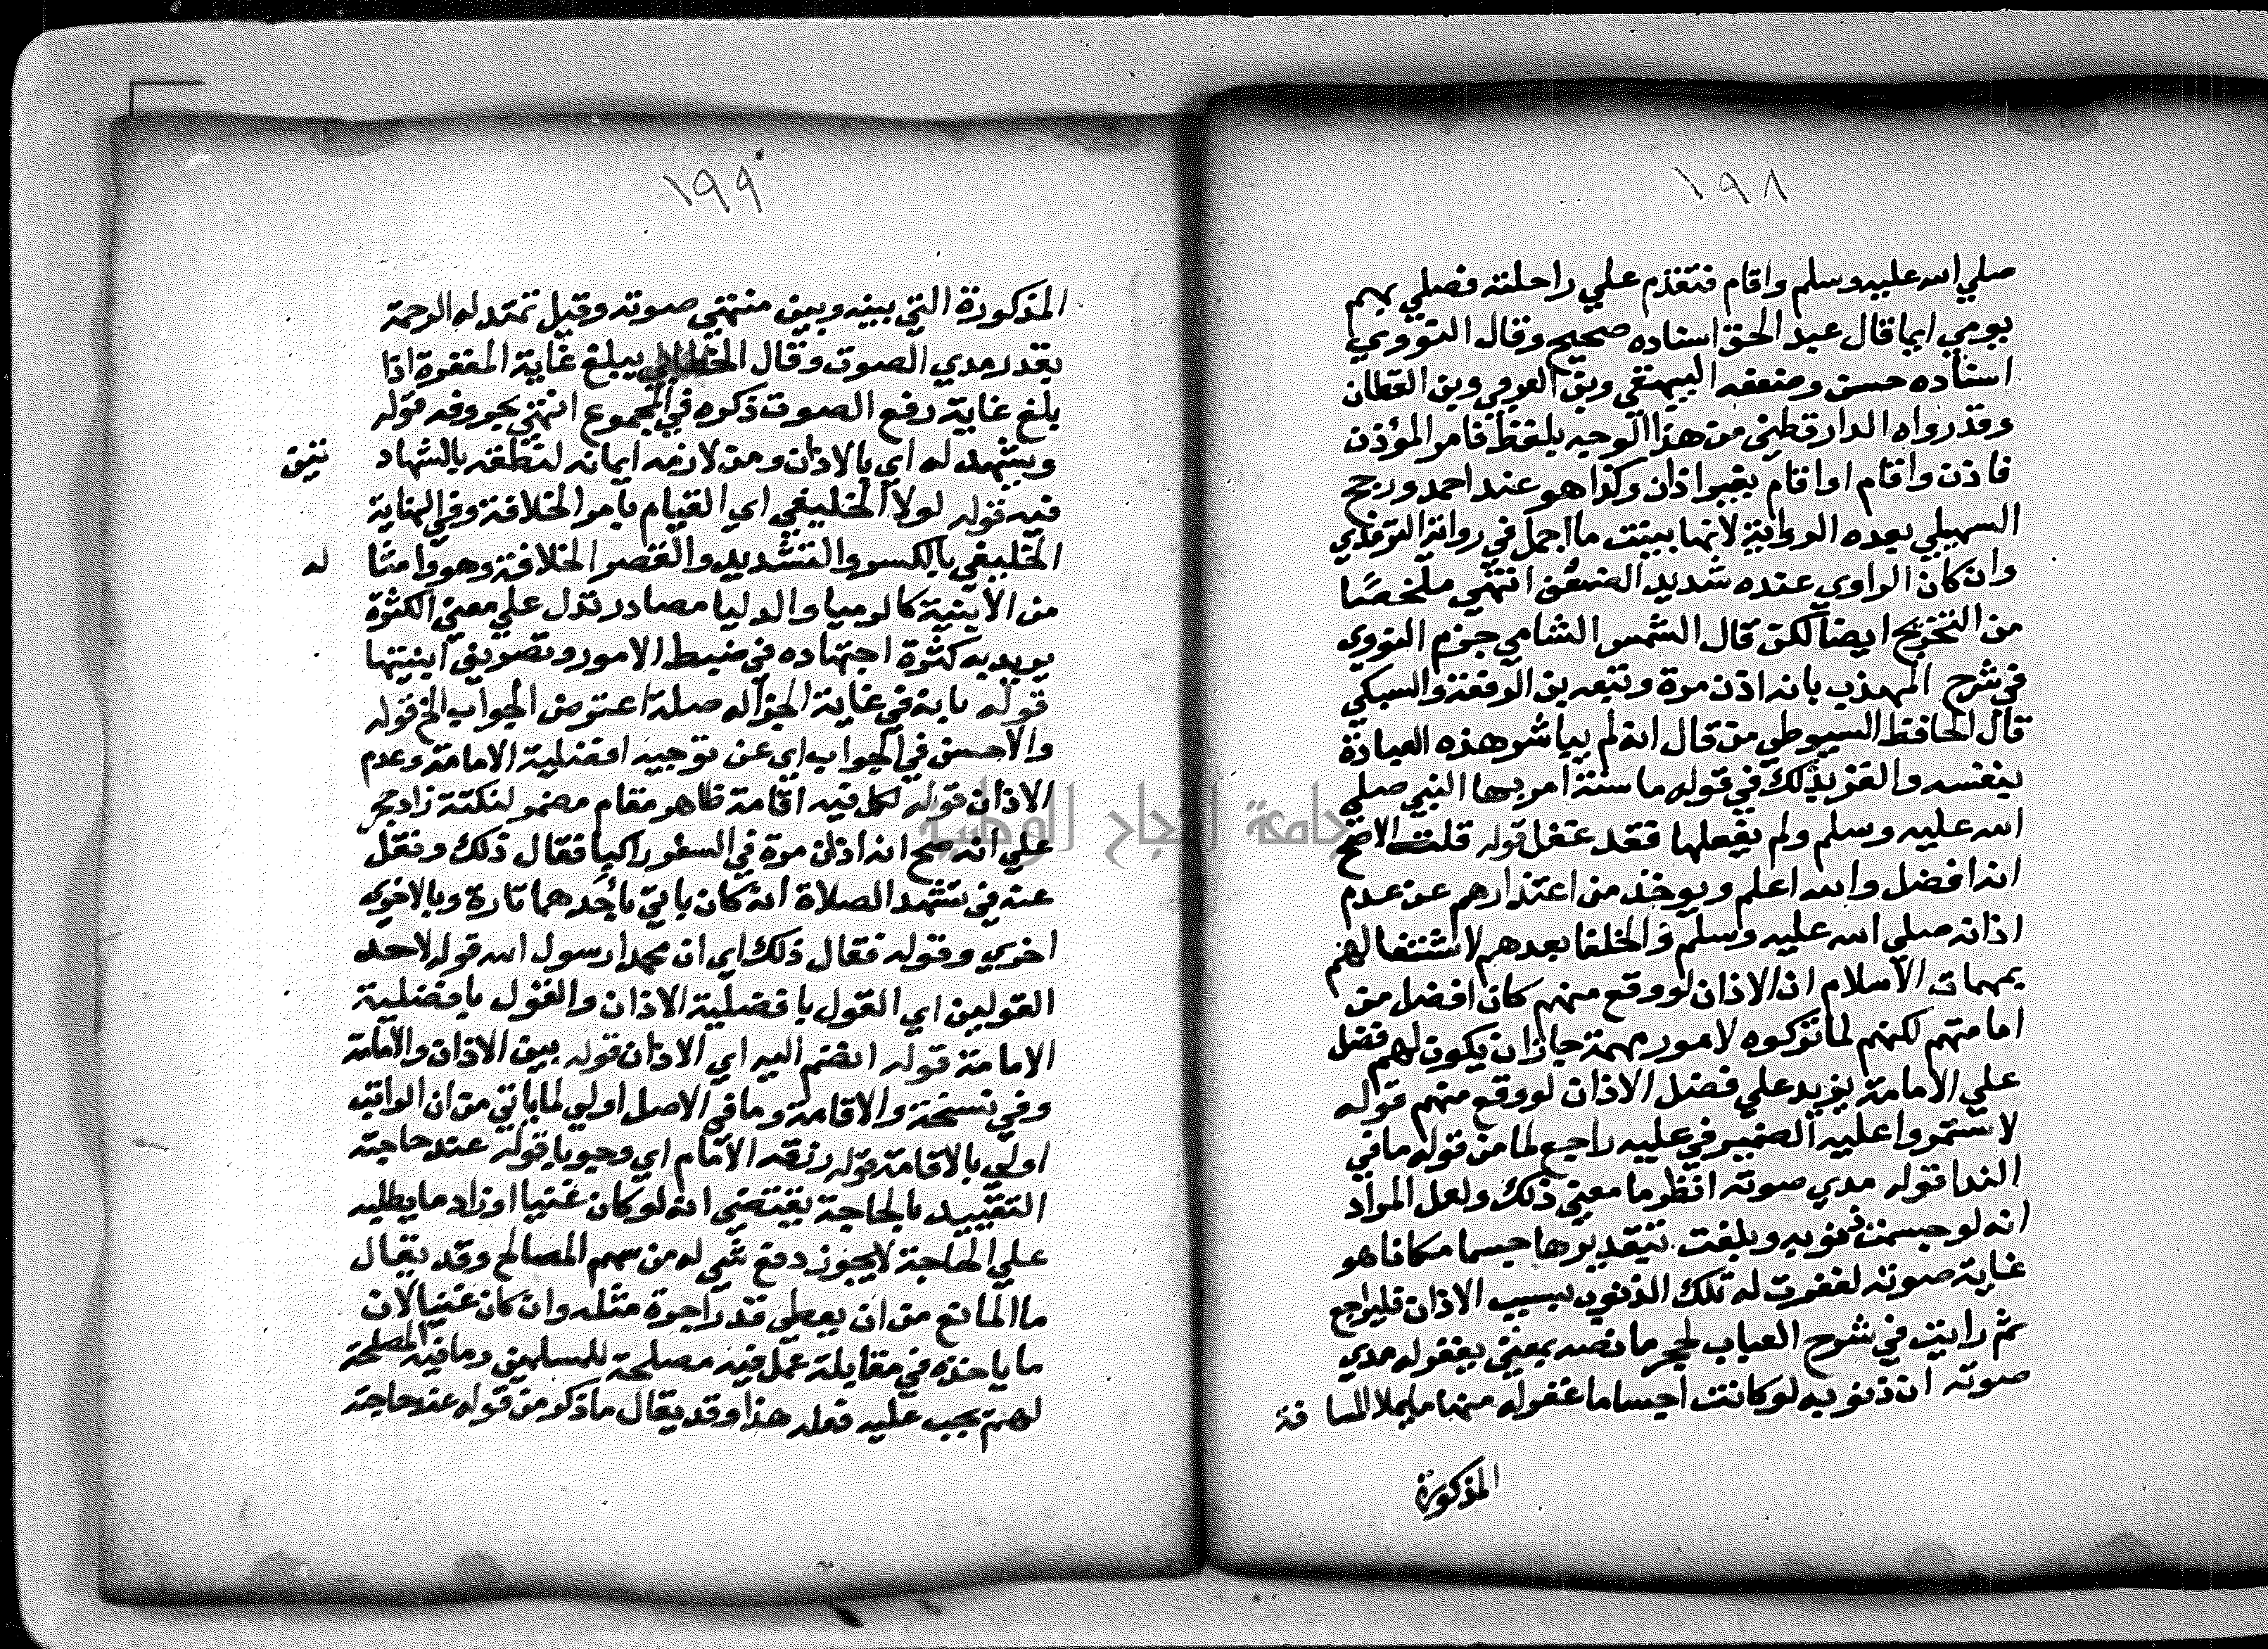 ١٩٨
صلي الله عليه وسلم واقام فتقدم علي راحلته فصلي بهم
يومي ايما قال عبد الحق اسناده صحيح وقال النووي
اسناده حسن وضعفه البيهقي وبن العربي وبن القطان
وقد رواه الدارقطني من هذا الوجه بلفظ فامر المؤذن
فاذن واقام او اقام بغير اذان وكذا هو عند احمد ورجح
السهيلي بعده الرواية لانها بينت ما اجمل في رواية الترمذي
وان كان الراوي عنده شديد الضعف انتهي ملخصًا
من التخريج ايضا لكن قال الشمس الشامي جزم النووي
في شرح المهذب بانه اذن مرة وتبعه بن الرفعة والسبكي
قال الحافظ السيوطي من قال انه لم يباشر هذه العبادة
بنفسه والغز بذلك في قوله ما سنة امر بها النبي صلي
الله عليه وسلم ولم يفعلها فقد غفل قوله قلت الاصح
انه افضل والله اعلم ويوخذ من اعتذارهم عن عدم
اذانه صلي الله عليه وسلم والخلفا بعدهم لاشتغالهم
بمهمات الاسلام ان الاذان لو وقع منهم كان افضل من
امامتهم لكنهم لما تركوه لامور مهمة جاز ان يكون لهم فضل
علي الامامة يزيد علي فضل الاذان لو وقع منهم قوله
لاستمروا عليه الضمير في عليه راجع لما من قوله ما في
الندا قوله مدي صوته انظر ما معني ذلك ولعل المراد
انه لو جسمت ذنوبه وبلغت بتقديرها جسما مكانا هو
غاية صوته لغفرت له تلك الذنوب بسبب الاذان فليراجع
ثم رايت في شرح العباب لحجر ما نصه بمعني يغفر له مدي
صوته ان ذنوبه لو كانت اجساما غفر له منها ما يملا المسا فة
المذكورة
١٩٩
المذكورة التي بينه وبين منتهي صوته وقيل تمتد له الرحمة
بقدر مدي الصوت وقال الخطابي يبلغ غاية المغفرة اذا
بلغ غاية رفع الصوت ذكره في المجموع انتهي بحروفه قوله
ويشهد له اي بالاذان ومن لازمه ايمانه لنطقه بالشهاد تين
فيه قوله لولا الخليفي اي القيام بامر الخلافة وفي النهاية
الخليفي بالكسر والتشديد والقصر الخلافة وهو وامثا له
من الابنية كالرميا والدليا مصادر تدل علي معني الكثرة
يريد به كثرة اجتهاده في ضبط الامور وتصريف اعنتها
قوله بانه في غاية الجزاله صلة اعترض الجواب الخ قوله
والاحسن في الجواب اي عن توجيه افضلية الامامة وعدم
الاذان قوله لكل فيه اقامة ظاهر مقام مضمر لنكتة زاد حجر
علي انه صح انه اذن مرة في السفر راكبا فقال ذلك ونقل
عنه في تشهد الصلاة انه كان ياتي باحدهما تارة وبالاخري
اخري وقوله فقال ذلك اي ان محمدا رسول الله قوله لاحد
القولين اي القول بافضلية الاذان والقول بافضلية
الامامة قوله انضم اليه اي الاذان قوله بين الاذان والامامة
وفي نسخة والاقامة وما في الاصل اولي لما ياتي من ان الراتب
اولي بالاقامة قوله رزقه الامام اي وجوبا قوله عند حاجته
التقييد بالحاجة يقتضي انه لو كان غنيا او زاد ما يطلبه
علي الحاجة لا يجوز دفع شي له من سهم المصالح وقد يقال
ما المانع من ان يعطي قدر اجرة مثله وان كان غنيا لان
ما ياخذه في مقابلة عمل فيه مصلحة للمسلمين وما فيه المصلحة
لهم يجب عليه فعله هذا وقد يقال ما ذكر من قوله عند حاجته
جامعة النجاح الوطنية